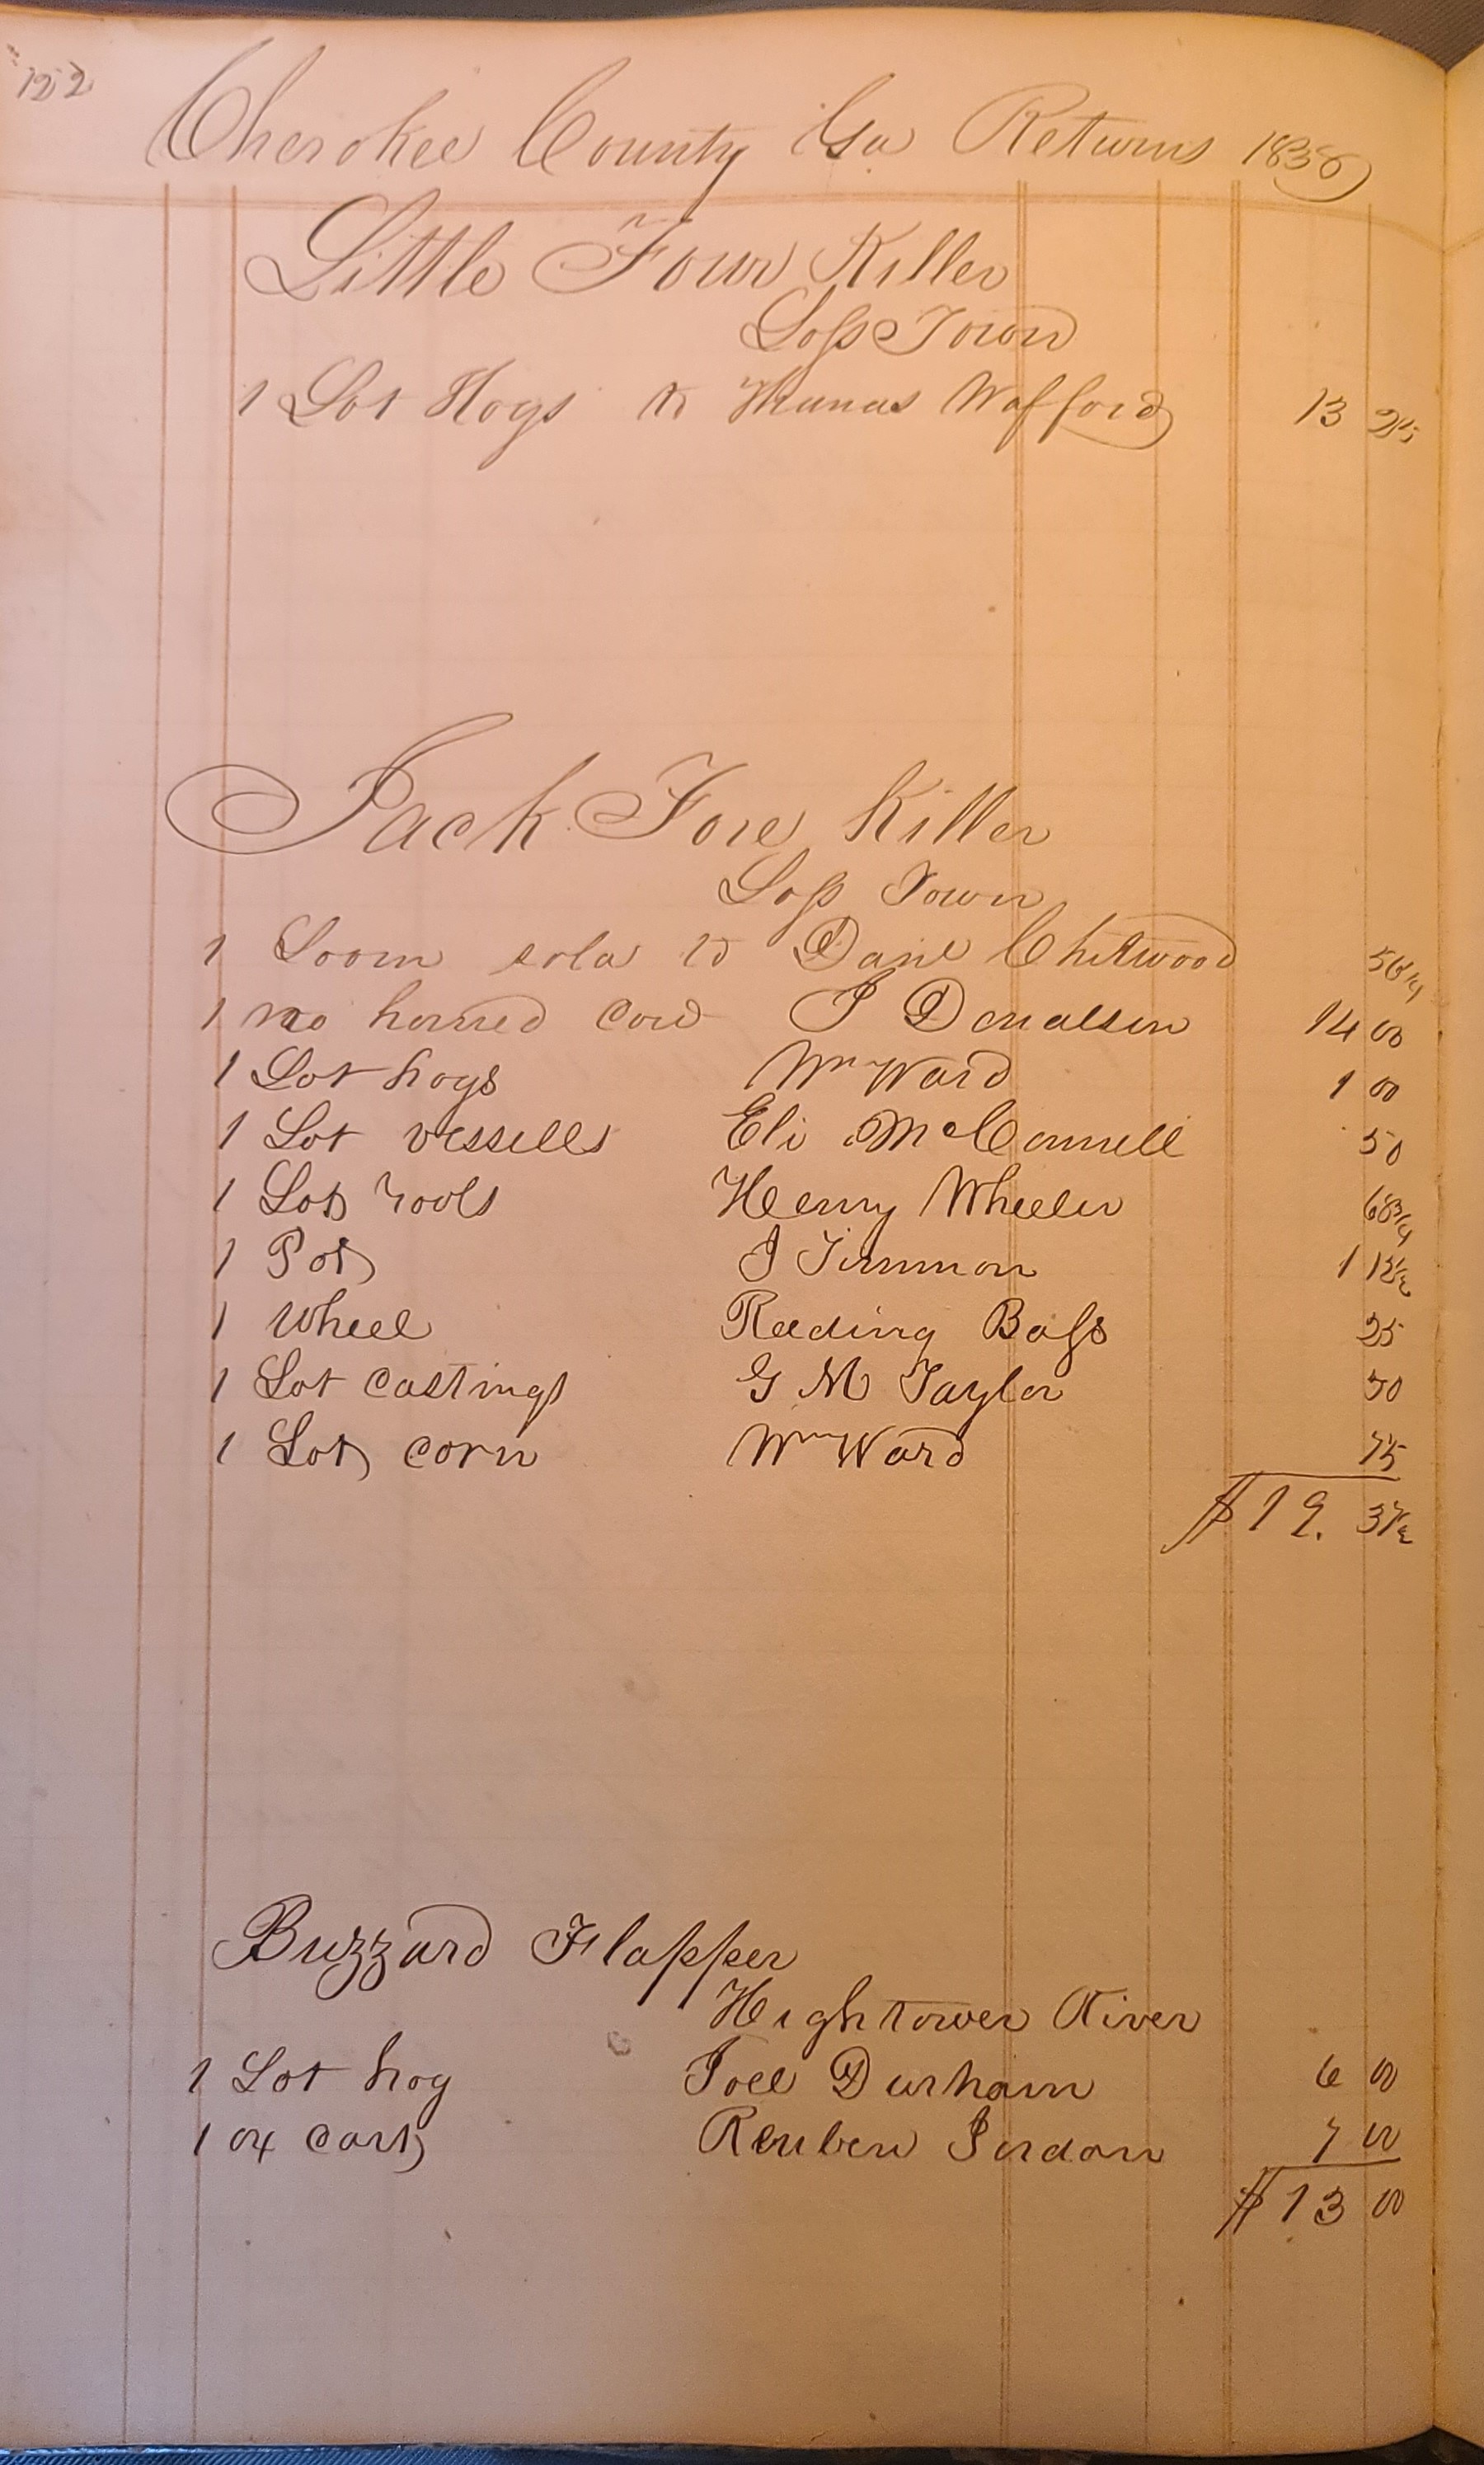 122
Cherokee County Ga Returns 1838
Little Four Killer
Loss Town
1 Lot Hogs to Thomas Wafford 13 25
Jack Fore Killer
Loss Town
1 Loom sold to Danl Chitwood 56 1/4
1 no horned cow J Donalson 14 00
1 Lot hogs Wm Ward 1 00
1 Lot vessells Eli McConnell 50
1 Lot Tools Henry Wheeler 68 3/4
1 Pot J Timmon 1 12 1/2
1 Wheel Reding Bass 25
1 Lot castings G M Taylor 50
1 Lot corn Wm Ward 75
$19. 37 1/2
Buzzard Flapper
Hightower River
1 Lot hog Joel Durham 6 00
1 ox cart Reuben Jordan 7 00
$13 00